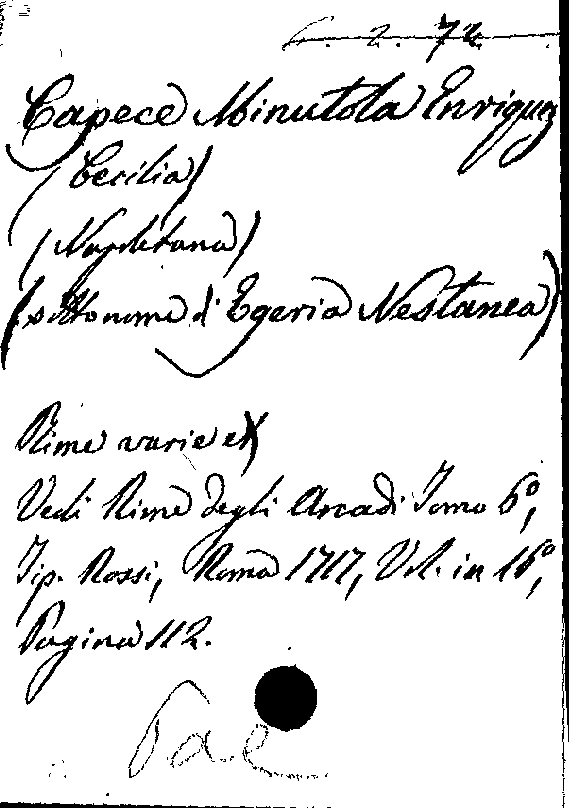 6. 2. 72
Capece Minutola Enriquez
(Cecilia)
(Napoletana)
(sotto nome d'Egeria Nestanea)
Rime varie
Vedi Rime degli Arcadi Tomo 6º,
Tip. Rossi, Roma 1717, Vol. in 16º,
Pagina 112.